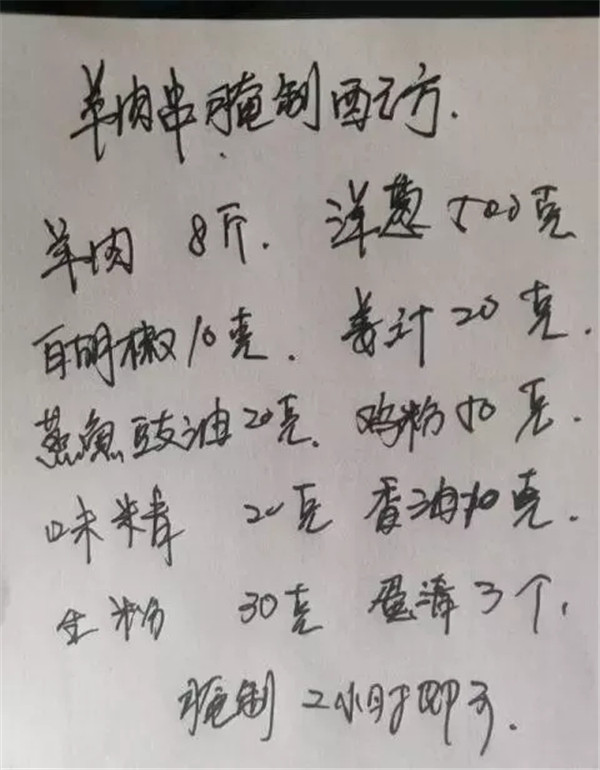 羊肉串腌制配方.
羊肉 8斤. 洋葱 500克
白胡椒10克. 姜汁20克.
蒸鱼豉油20克. 鸡粉50克.
味精 20克 香油10克.
生粉 30克 蛋清3个.
腌制2小时即可.